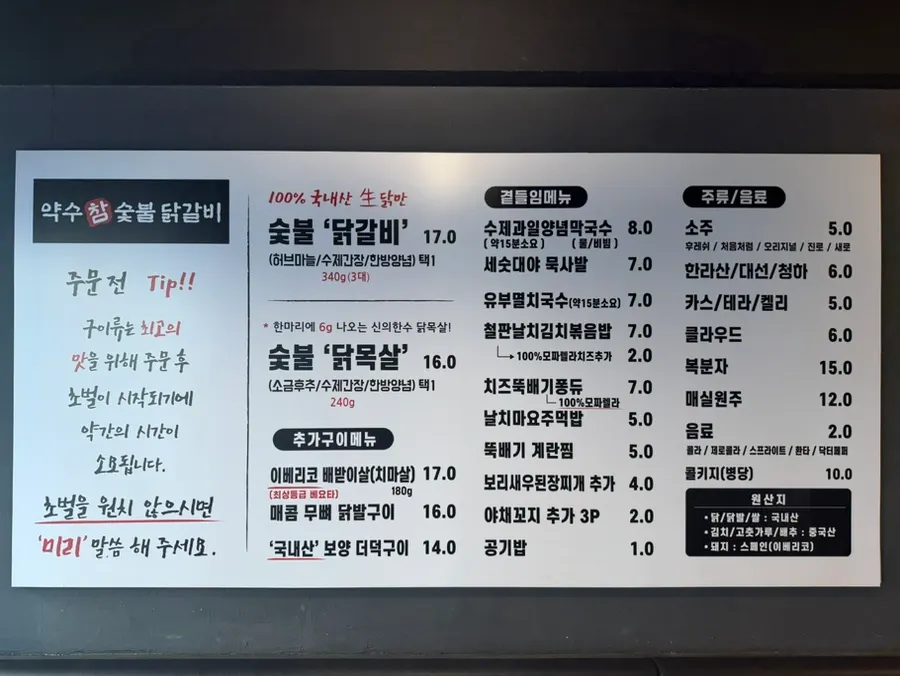 약수 참 숯불 닭갈비
주문 전 Tip!!
구이류는 최고의
맛을 위해 주문 후
초벌이 시작되기에
약간의 시간이
소요됩니다.
초벌을 원치 않으시면
'미리' 말씀 해 주세요.
100% 국내산 生 닭만
숯불 '닭갈비' 17.0
(허브마늘/수제간장/한방양념) 택1
340g(3대)
* 한마리에 6g 나오는 신의한수 닭목살!
숯불 '닭목살' 16.0
(소금후추/수제간장/한방양념) 택1
240g
추가구이메뉴
이베리코 배받이살(치마살) 17.0
(최상등급 베요타) 180g
매콤 무뼈 닭발구이 16.0
'국내산' 보양 더덕구이 14.0
곁들임메뉴
수제과일양념막국수 8.0
(약15분소요) (물/비빔)
세숫대야 묵사발 7.0
유부멸치국수(약15분소요) 7.0
철판날치김치볶음밥 7.0
100%모짜렐라치즈추가 2.0
치즈뚝배기퐁듀 7.0
100%모짜렐라
날치마요주먹밥 5.0
뚝배기 계란찜 5.0
보리새우된장찌개 추가 4.0
야채꼬지 추가 3P 2.0
공기밥 1.0
주류/음료
소주 5.0
후레쉬 / 처음처럼 / 오리지널 / 진로 / 새로
한라산/대선/청하 6.0
카스/테라/켈리 5.0
클라우드 6.0
복분자 15.0
매실원주 12.0
음료 2.0
콜라 / 제로콜라 / 스프라이트 / 환타 / 닥터페퍼
콜키지(병당) 10.0
원산지
• 닭/닭발/쌀 : 국내산
• 김치/고춧가루/배추 : 중국산
• 돼지 : 스페인(이베리코)